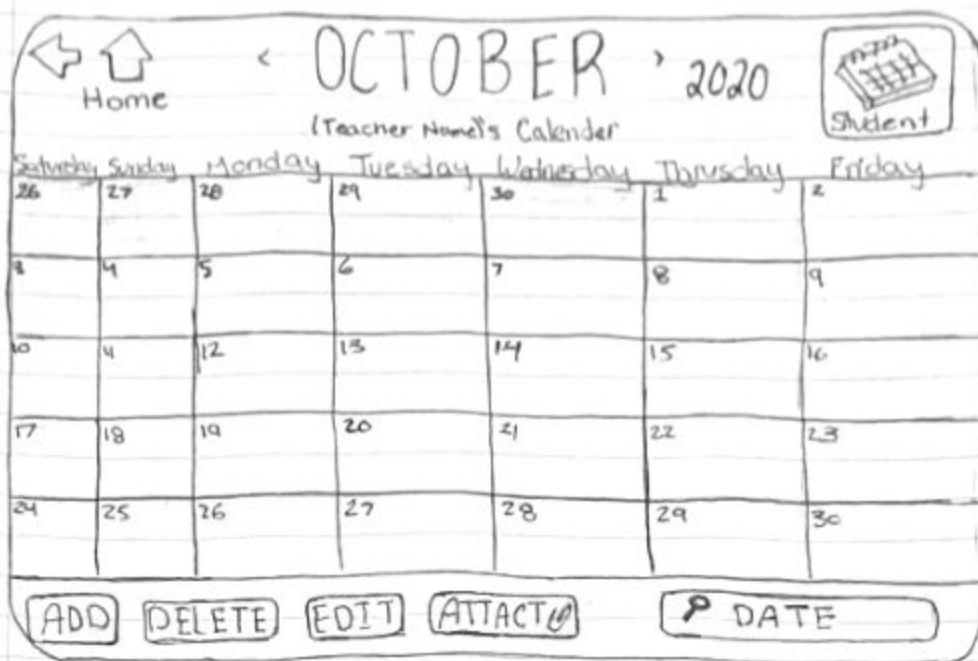 < OCTOBER > 2020
Home
Student
(Teacher Name)'s Calender
Saturday Sunday Monday Tuesday Wednesday Thrusday Friday
26 27 28 29 30 1 2
3 4 5 6 7 8 9
10 11 12 13 14 15 16
17 18 19 20 21 22 23
24 25 26 27 28 29 30
ADD DELETE EDIT ATTACT DATE